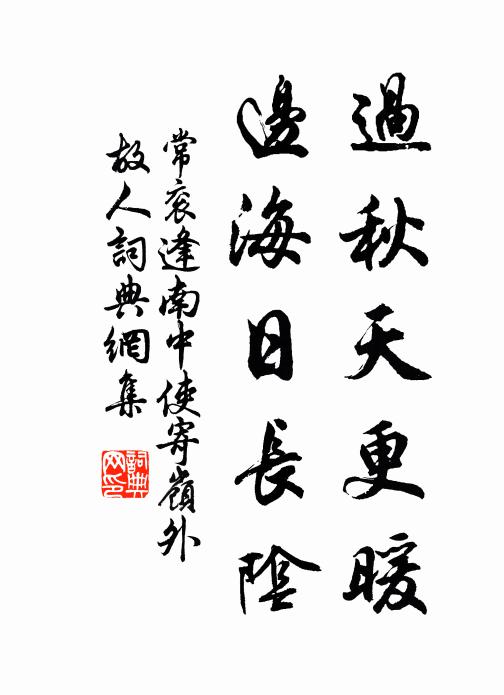 過秋天更暖
邊海日長陰
常袞逢南中使寄嶺外
故人詞典網集
詞典
网印